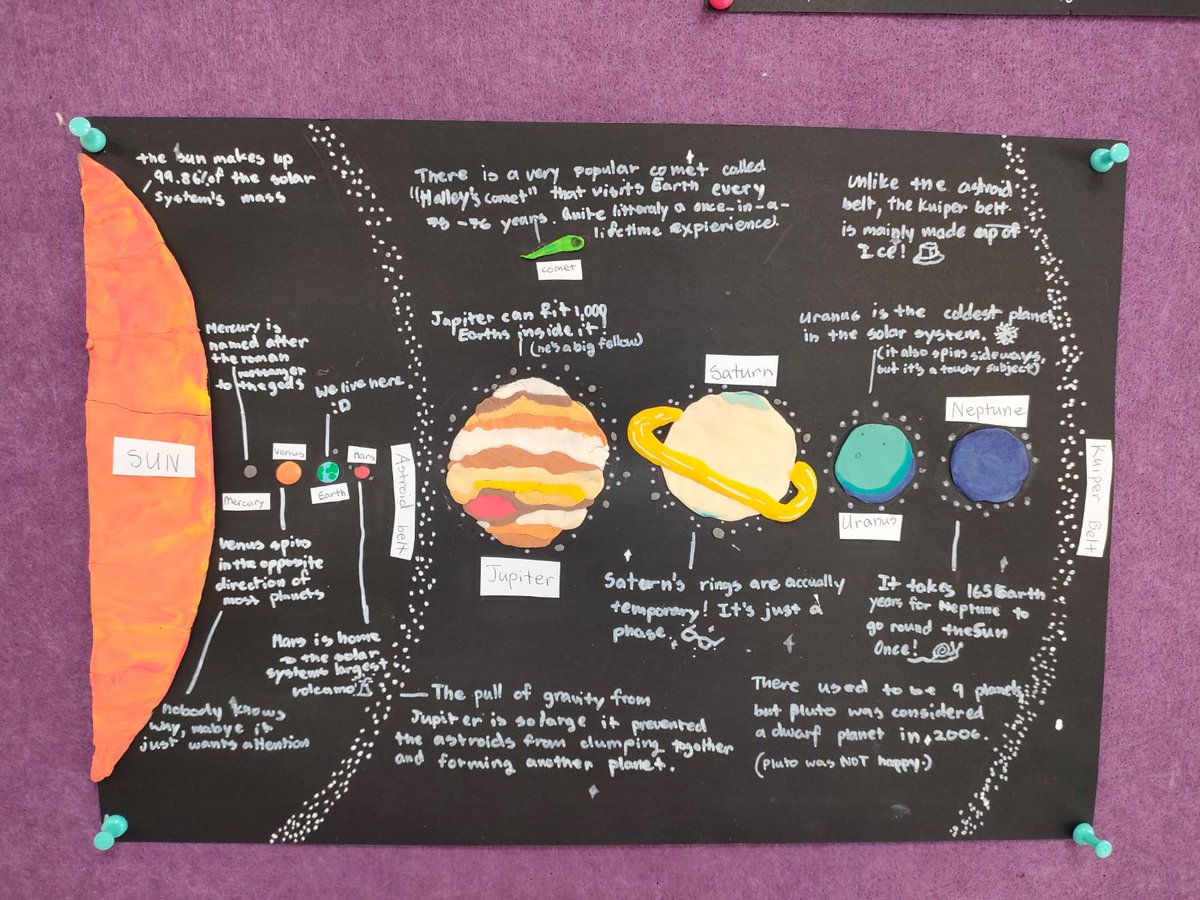 the sun makes up
99.86% of the solar
system's mass
There is a very popular comet called
"Halley's comet" that visits Earth every
-76 years. Quite litteraly a once-in-a-
lifetime expierience.
comet
unlike the astroid
belt, the Kuiper belt
is mainly made up of
Ice!
Mercury is
named after
the roman
messanger
to the gods
we live here
:D
Jupiter can fit 1,000
Earths inside it
(he's a big fellow)
uranus is the coldest planet
in the solar system.
(it also spins sideways,
but it's a touchy subject)
SUN
Mercury
Venus
Earth
Mars
Astroid belt
Jupiter
Saturn
Uranus
Neptune
Kuiper Belt
Venus spins
in the opposite
direction of
most planets
nobody knows
why, mabye it
just wants attention
Mars is home
to the solar
systems largest
volcano
Saturn's rings are accually
temporary! It's just a
phase.
It takes 165 Earth
years for Neptune to
go round the sun
Once!
The pull of gravity from
Jupiter is so large it prevented
the astroids from clumping together
and forming another planet.
There used to be 9 planets
but Pluto was considered
a dwarf planet in 2006.
(Pluto was NOT happy.)